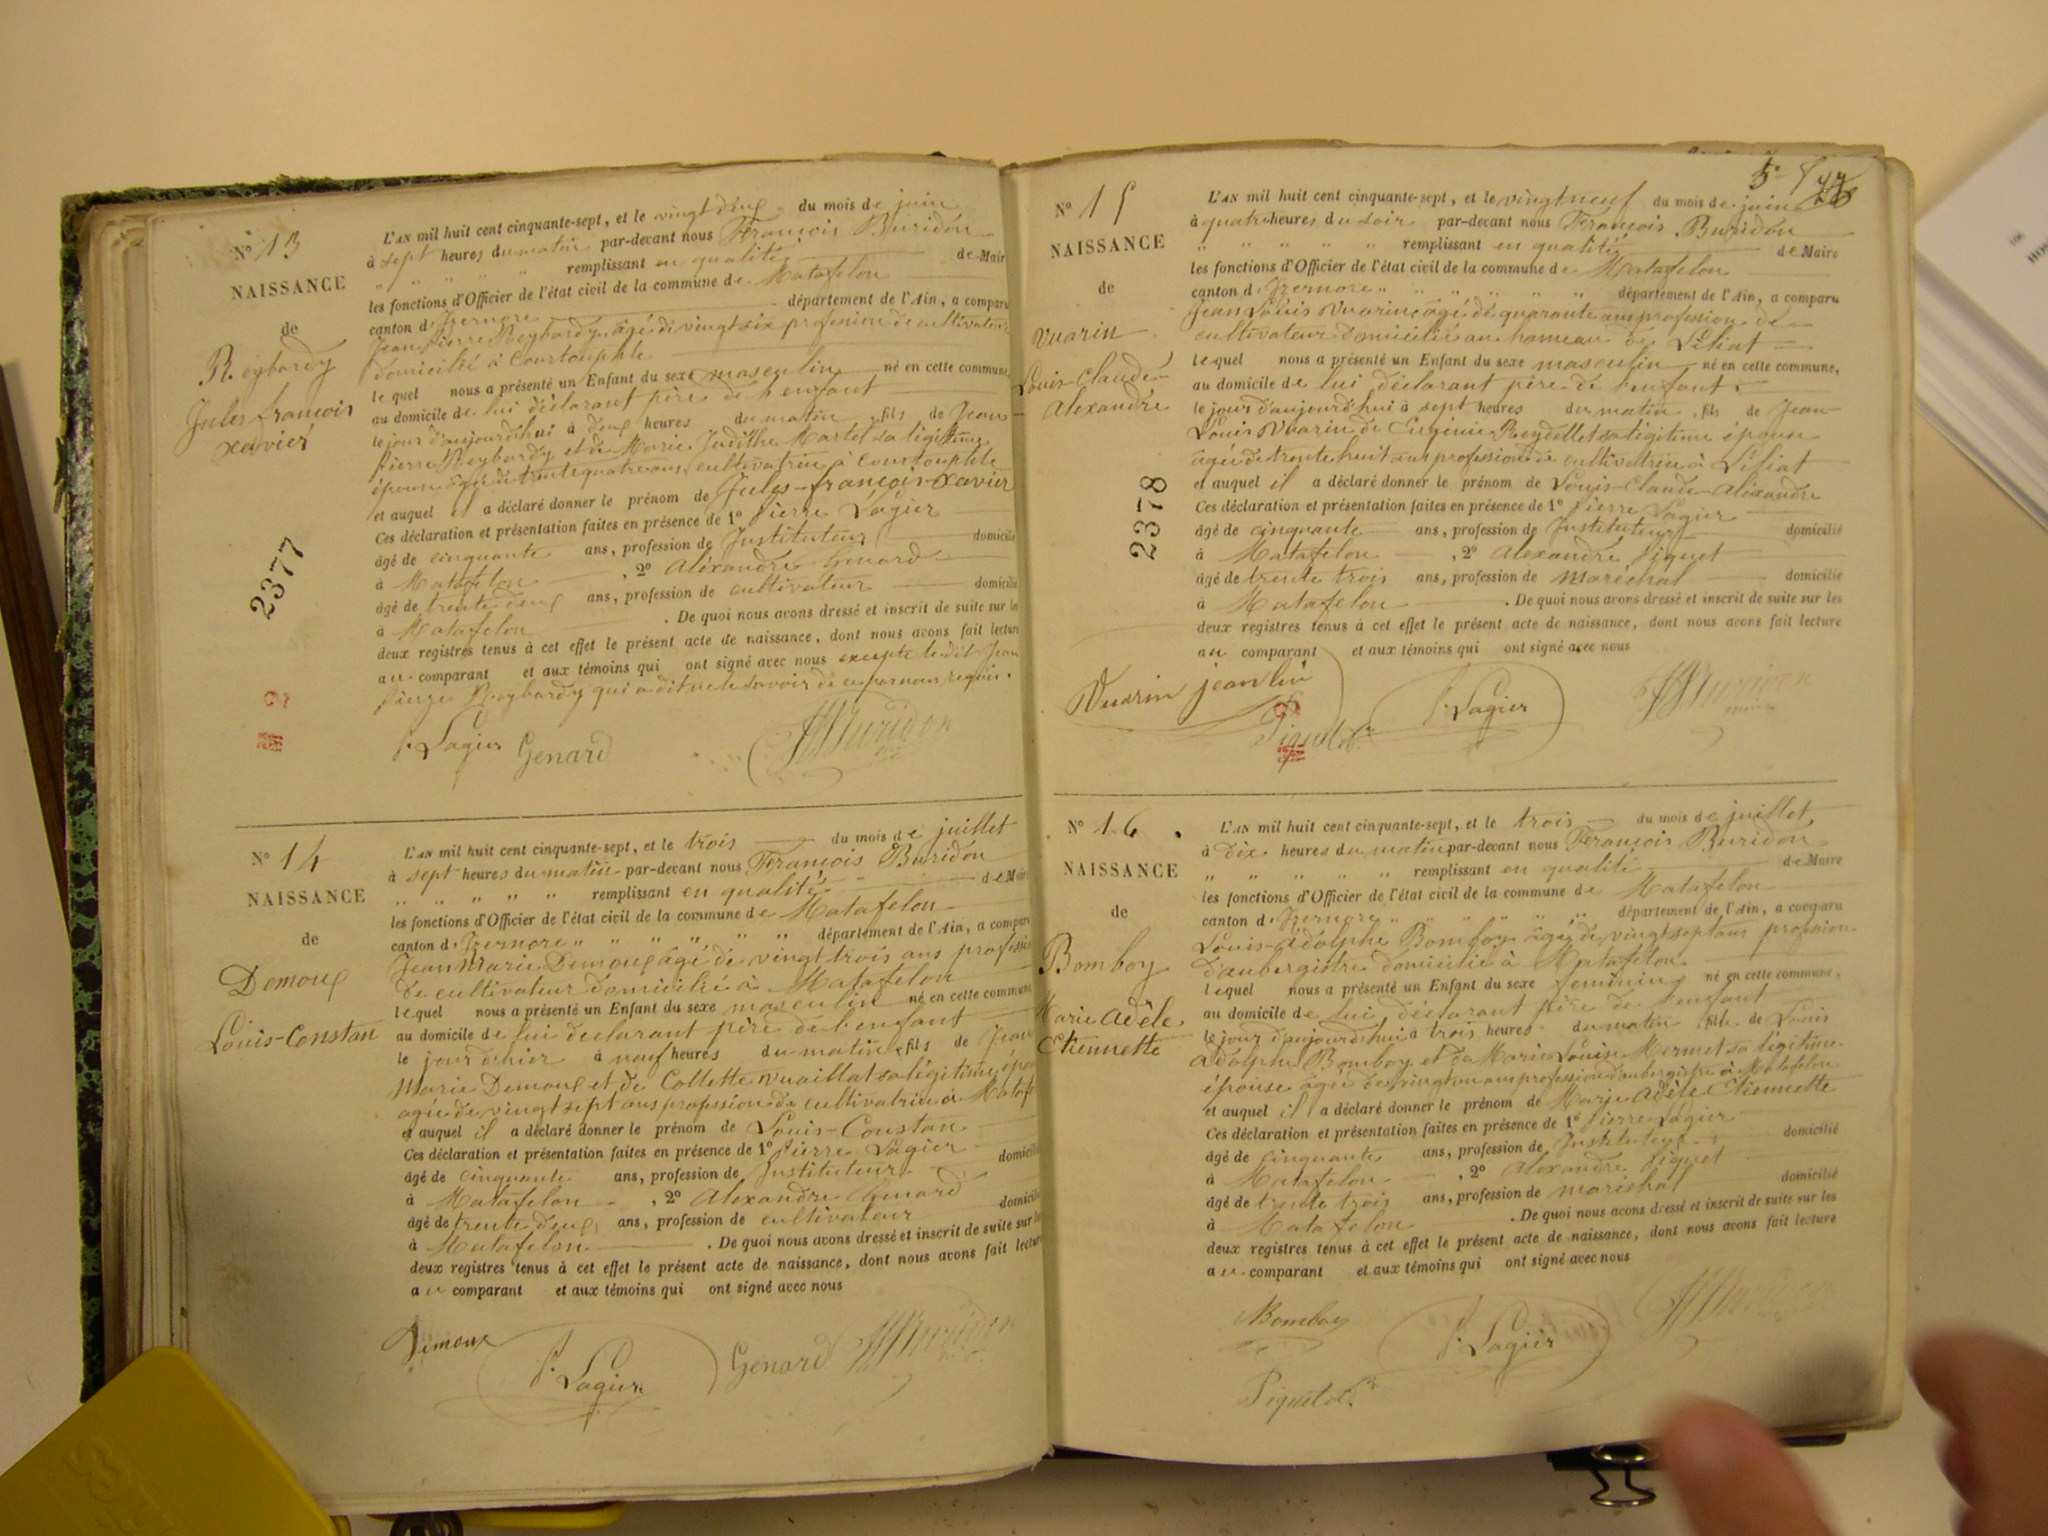 N° 13
NAISSANCE
de
Reybardy
Jules françois
xavier
2377
L'AN mil huit cent cinquante-sept, et le vingt deux du mois de juin
à sept heures du matin par-devant nous François Buridon
" " " " remplissant en qualité de Maire
les fonctions d'Officier de l'état civil de la commune de Matafelon
canton d'Izernore département de l'Ain, a comparu
Jean pierre Reybardy âgé de vingt six profession de cultivateur
domicilié à Courtouphle
lequel nous a présenté un Enfant du sexe masculin né en cette commune,
au domicile de lui déclarant père de l'enfant
le jour d'aujourd'hui à deux heures du matin, fils de Jean
pierre Reybardy et de Marie Judithe Martel sa légitime
épouse âgée de trente quatre ans cultivatrice à Courtouphle
et auquel il a déclaré donner le prénom de Jules-françois-xavier
Ces déclaration et présentation faites en présence de 1° pierre Lagier
âgé de cinquante ans, profession de Instituteur domicilié
à Matafelon, 2° Alexandre Genard
âgé de trente deux ans, profession de cultivateur domicilié
à Matafelon. De quoi nous avons dressé et inscrit de suite sur les
deux registres tenus à cet effet le présent acte de naissance, dont nous avons fait lecture
au comparant et aux témoins qui ont signé avec nous excepté ledit Jean
pierre Reybardy qui a dit ne le savoir de ce par nous requis.
P. Lagier Genard Buridon
N° 14
NAISSANCE
de
Demoux
Louis-Constan
L'AN mil huit cent cinquante-sept, et le trois du mois de juillet
à sept heures du matin par-devant nous François Buridon
" " " " " remplissant en qualité de Maire
les fonctions d'Officier de l'état civil de la commune de Matafelon
canton d'Izernore " " " " " " département de l'Ain, a comparu
Jean Marie Demoux âgé de vingt trois ans profession
de cultivateur domicilié à Matafelon
lequel nous a présenté un Enfant du sexe masculin né en cette commune
au domicile de lui déclarant père de l'enfant
le jour d'hier à neuf heures du matin, fils de Jean
Marie Demoux et de Collette Vuaillat sa légitime épouse
âgée de vingt sept ans profession de cultivatrice à Mataf
et auquel il a déclaré donner le prénom de Louis-Constan
Ces déclaration et présentation faites en présence de 1° pierre Lagier
âgé de cinquante ans, profession de Instituteur domicilié
à Matafelon, 2° Alexandre Genard
âgé de trente deux ans, profession de cultivateur domicilié
à Matafelon. De quoi nous avons dressé et inscrit de suite sur les
deux registres tenus à cet effet le présent acte de naissance, dont nous avons fait lecture
au comparant et aux témoins qui ont signé avec nous
Demoux P. Lagier Genard Buridon
5
N° 15
NAISSANCE
de
Vuarin
Louis-Claude-
Alexandre
2378
L'AN mil huit cent cinquante-sept, et le vingt neuf du mois de juin
à quatre heures du soir par-devant nous François Buridon
" " " " " remplissant en qualité de Maire
les fonctions d'Officier de l'état civil de la commune de Matafelon
canton d'Izernore " " " " " " département de l'Ain, a comparu
Jean Louis Vuarin âgé de quarante ans profession de
cultivateur domicilié au hameau de Léliat
lequel nous a présenté un Enfant du sexe masculin né en cette commune,
au domicile de lui déclarant père de l'enfant
le jour d'aujourd'hui à sept heures du matin, fils de Jean-
Louis Vuarin de Eugénie Reydellet sa légitime épouse
âgée de trente huit ans profession de cultivatrice à Léliat
et auquel il a déclaré donner le prénom de Louis-Claude-Alexandre
Ces déclaration et présentation faites en présence de 1° pierre Lagier
âgé de cinquante ans, profession de Instituteur domicilié
à Matafelon, 2° Alexandre Piquet
âgé de trente trois ans, profession de maréchal domicilié
à Matafelon. De quoi nous avons dressé et inscrit de suite sur les
deux registres tenus à cet effet le présent acte de naissance, dont nous avons fait lecture
au comparant et aux témoins qui ont signé avec nous
Vuarin jean lui P. Lagier Buridon
N° 16
NAISSANCE
de
Bomboy
Marie Adèle
Etiennette
L'AN mil huit cent cinquante-sept, et le trois du mois de juillet
à dix heures du matin par-devant nous François Buridon
" " " " " remplissant en qualité de Maire
les fonctions d'Officier de l'état civil de la commune de Matafelon
canton d'Izernore " " " " " " département de l'Ain, a comparu
Louis-Adolphe Bomboy âgé de vingt sept ans profession
d'aubergistre domicilié à Matafelon
lequel nous a présenté un Enfant du sexe féminin né en cette commune,
au domicile de lui déclarant père de l'enfant
le jour d'aujourd'hui à trois heures du matin, fille de Louis
Adolphe Bomboy et de Marie Louise Mermet sa légitime
épouse âgée de vingt un ans profession d'aubergistre à Matafelon
et auquel il a déclaré donner le prénom de Marie Adèle Etiennette
Ces déclaration et présentation faites en présence de 1° pierre Lagier
âgé de cinquante ans, profession de Instituteur domicilié
à Matafelon, 2° Alexandre Piquet
âgé de trente trois ans, profession de maréchal domicilié
à Matafelon. De quoi nous avons dressé et inscrit de suite sur les
deux registres tenus à cet effet le présent acte de naissance, dont nous avons fait lecture
au comparant et aux témoins qui ont signé avec nous
Bomboy P. Lagier Buridon